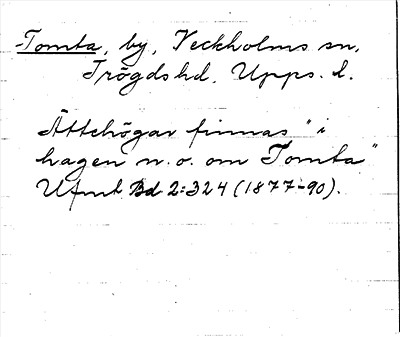 Tomta, by, Veckholms sn,
Trögds hd, Upps. l.
Ättehögar finnas "i
hagen n. o. om Tomta"
Utmt Bd 2:324 (1877-90).